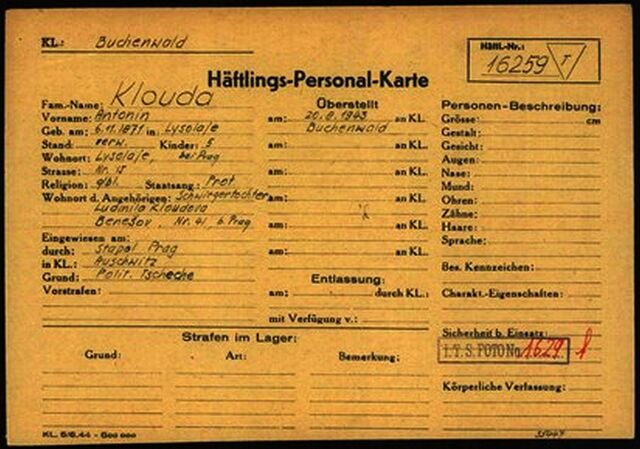 KL.: Buchenwald
Häftl.-Nr.:
16259 T
Häftlings-Personal-Karte
Fam.-Name: Klouda
Vorname: Antonin
Geb. am: 6.11.1871 in: Lysolaje
Stand: verw. Kinder: 5
Wohnort: Lysolaje, bei Prag
Strasse: Nr. 15
Religion: glbl. Staatsang.: Prot
Wohnort d. Angehörigen: Schwirgertochter
Ludmila Kloudova
Benešov, Nr. 41, b. Prag
Eingewiesen am:
durch: Stapol Prag
in KL.: Auschwitz
Grund: Polit. Tscheche
Vorstrafen:
Überstellt
am: 20.8.1943 an KL.
Buchenwald
am: an KL.
am: an KL.
am: an KL.
am: an KL.
am: an KL.
Entlassung:
am: durch KL.:
mit Verfügung v.:
Personen-Beschreibung:
Grösse: cm
Gestalt:
Gesicht:
Augen:
Nase:
Mund:
Ohren:
Zähne:
Haare:
Sprache:
Bes. Kennzeichen:
Charakt.-Eigenschaften:
Sicherheit b. Einsatz:
I.T.S. FOTO No. 1629
Körperliche Verfassung:
Strafen im Lager:
Grund: Art: Bemerkung:
KL. 5/6.44 - 500 000